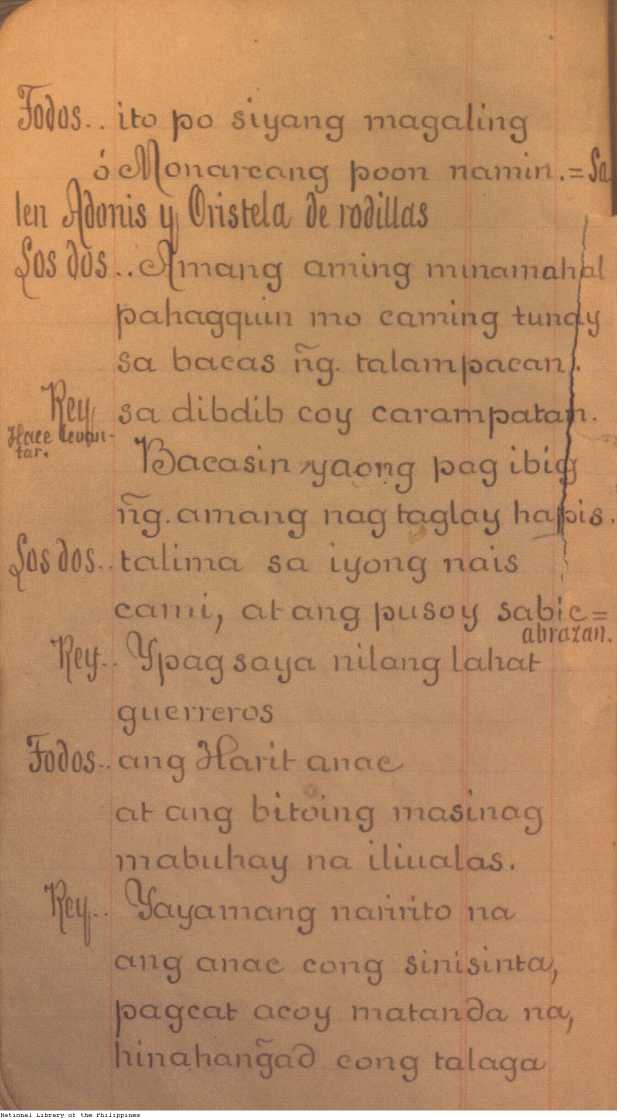 Todos.. ito po siyang magaling
ó Monarcang poon namin. = Sa
len Adonis y Oristela de rodillas
Los dos.. Amang aming minamahal
pahagquin mo caming tunay
sa bacas ñg. talampacan.
Rey sa dibdib coy carampatan.
Hace levan-
tar.
Bacasin yaong pag ibig
ñg. amang nag taglay hapis.
Los dos.. talima sa iyong nais
cami, at ang pusoy sabic =
abrazan.
Rey.. Ypag saya nilang lahat
guerreros
Todos.. ang Harit anac
at ang bitoing masinag
mabuhay na iliualas.
Rey.. Yayamang naririto na
ang anac cong sinisinta,
pagcat acoy matanda na,
hinahang̃ad cong talaga
National Library of the Philippines